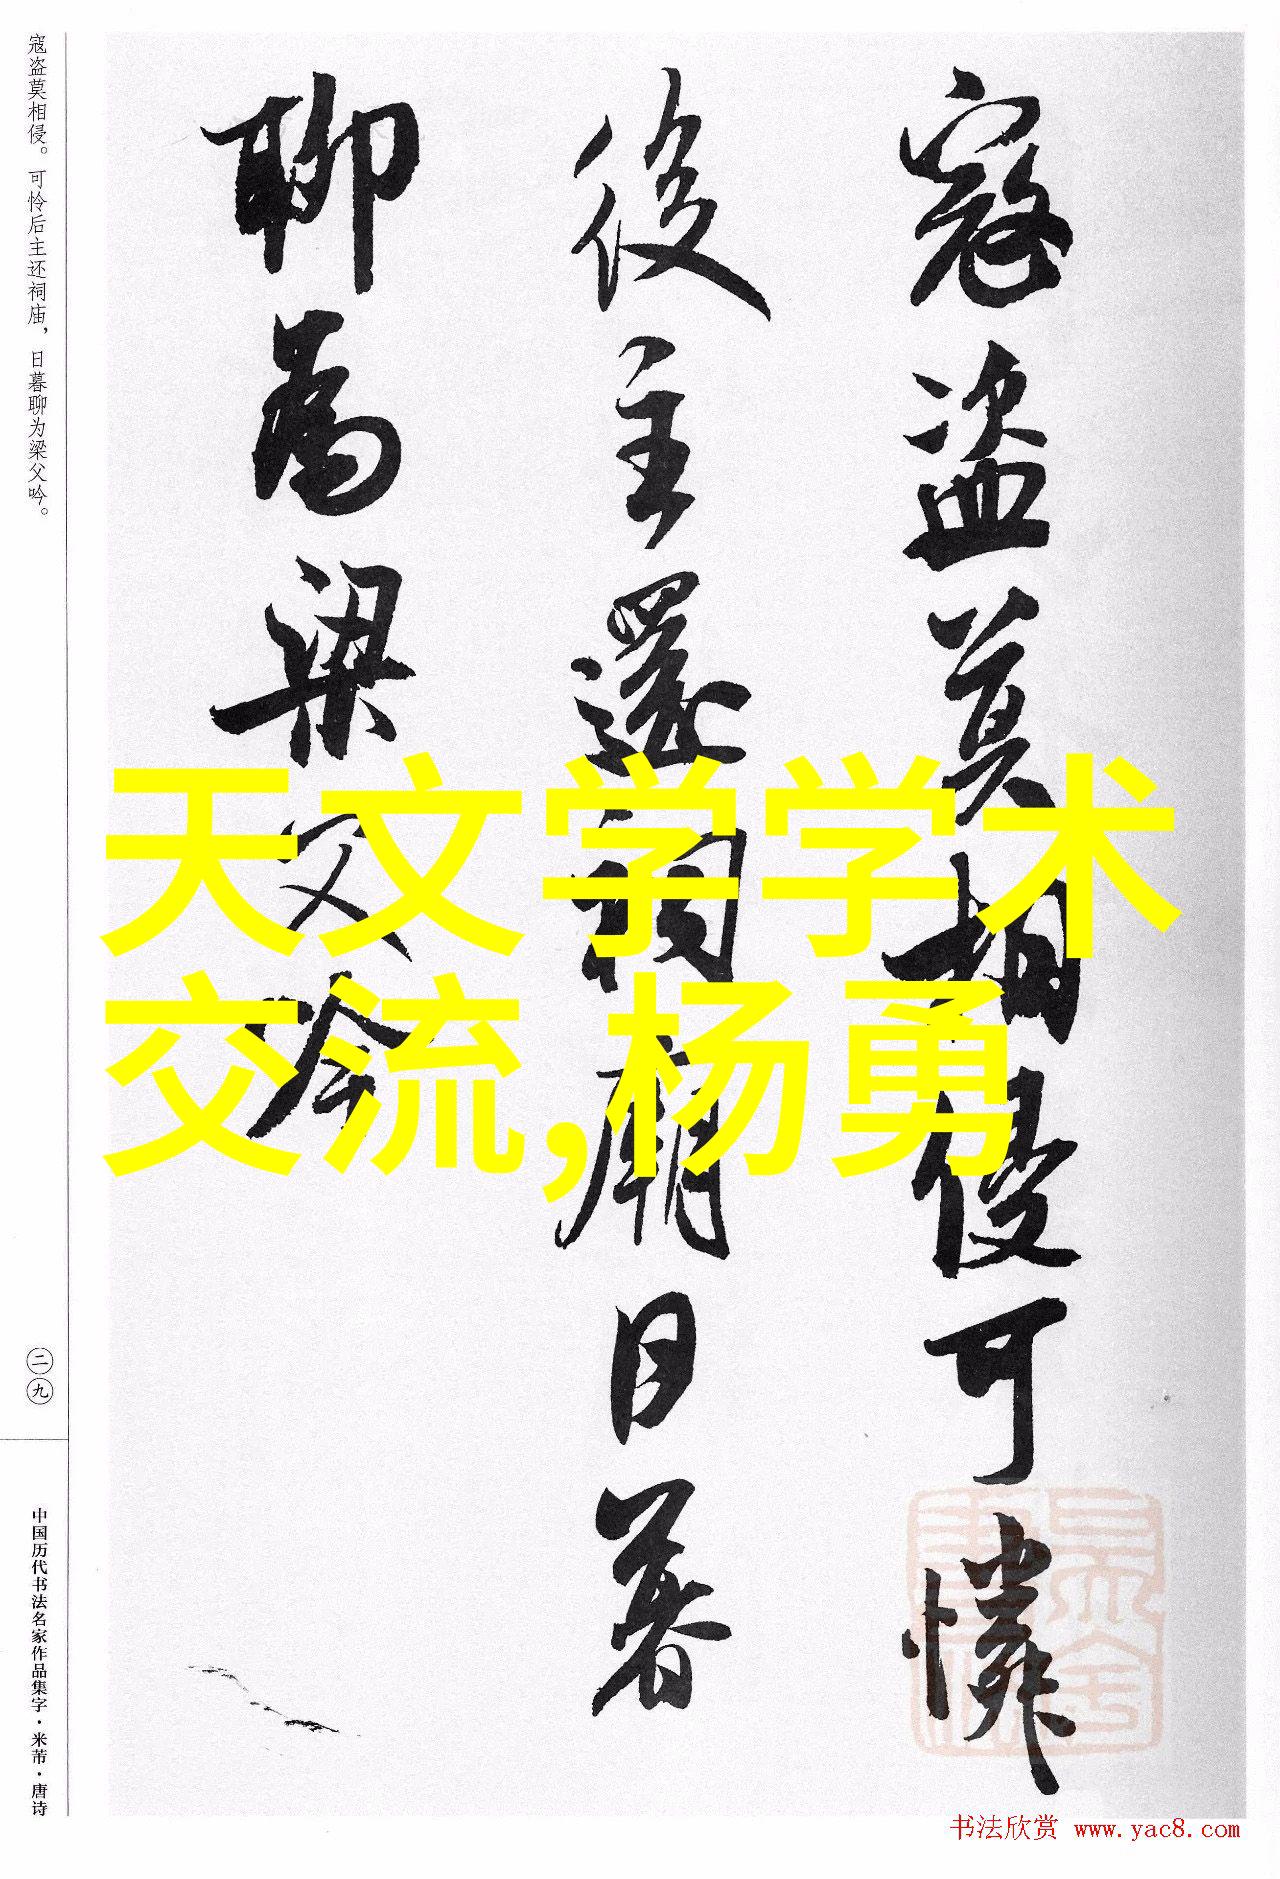 寇盗莫相侵可憐
後主還祠廟日暮
聊為梁父吟
寇盗莫相侵。可怜后主还祠庙，日暮聊为梁父吟。
二九
中国历代书法名家作品集字·米芾·唐诗
天文学学术
交流,杨勇
书法欣赏 www.yac8.com